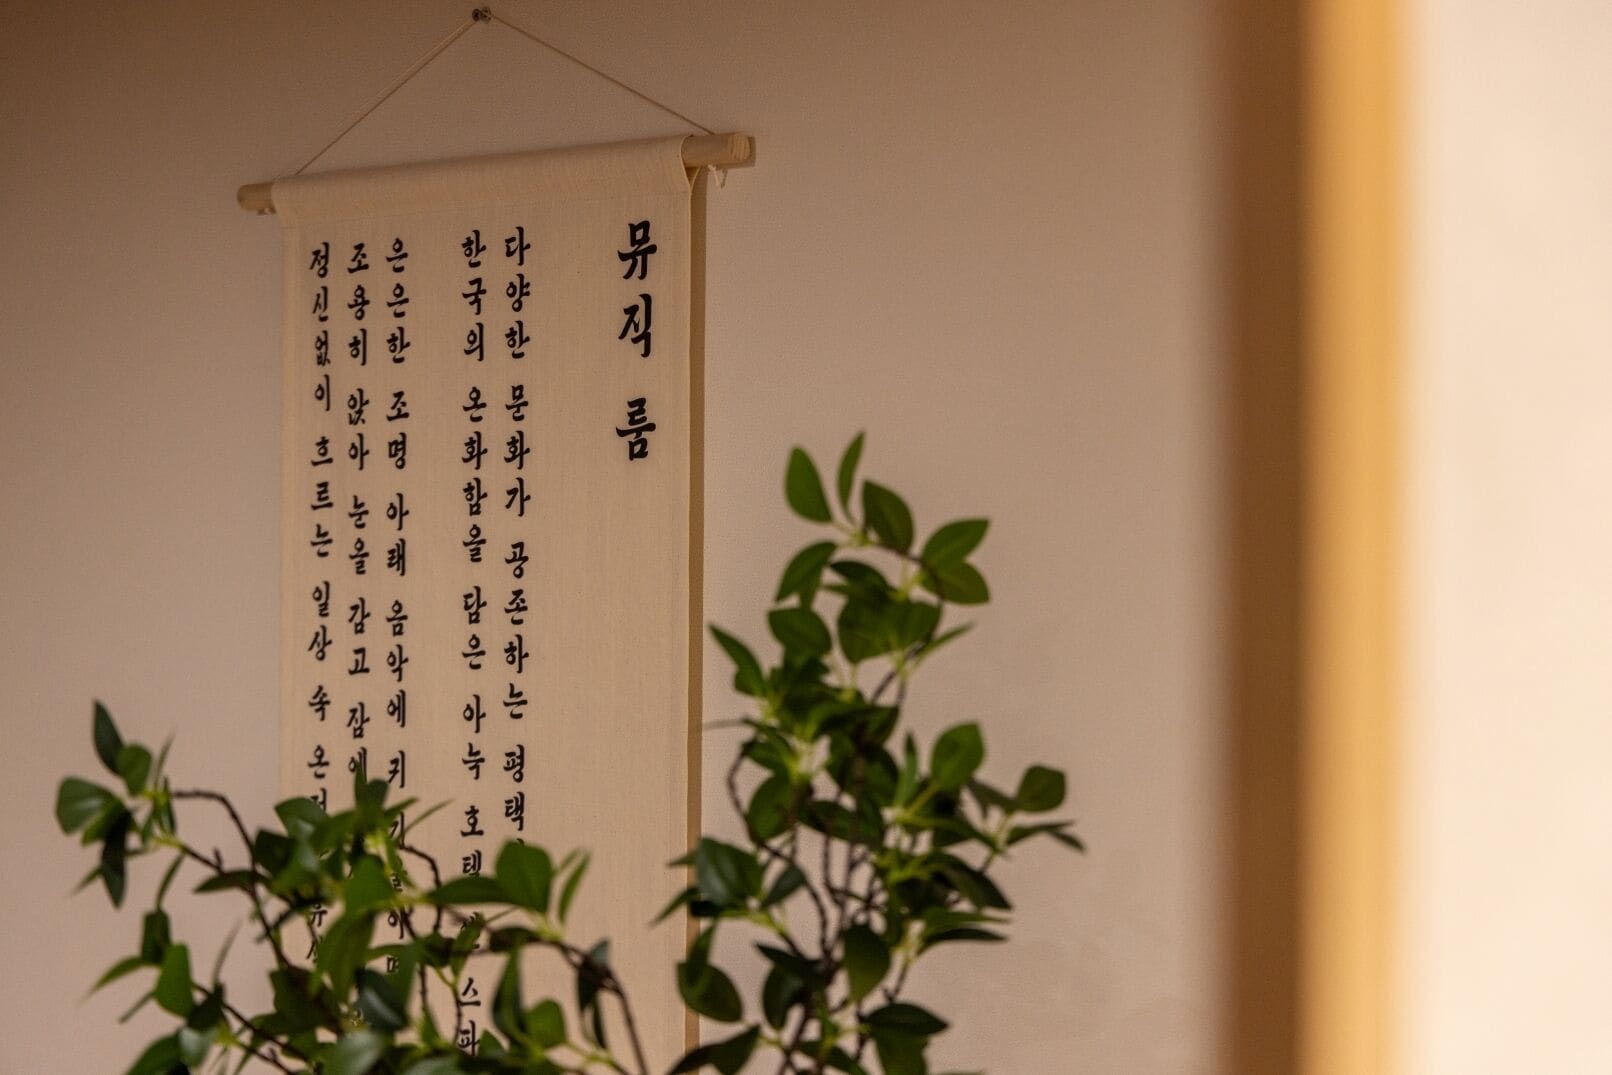 뮤직 룸
다양한 문화가 공존하는 평택
한국의 온화함을 담은 아늑 호텔 스파
은은한 조명 아래 음악에 귀
조용히 앉아 눈을 감고 잠에
정신없이 흐르는 일상 속 온전